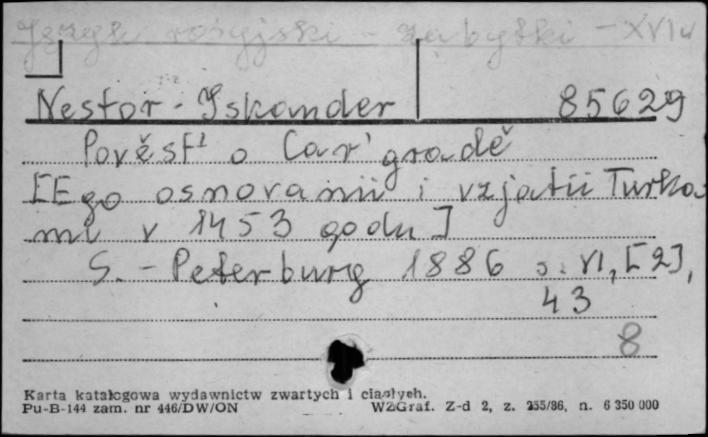 Język rosyjski - zabytki - XVI w
Nestor-Iskander 85629
Pověst' o Car'gradě
[Ego osnovanii i vzjatii Turka-
mi v 1453 godu]
S.-Peterburg 1886 s. VI, [2],
43
8
Karta katalogowa wydawnictw zwartych i ciągłych.
Pu-B-144 zam. nr 446/DW/ON WZGraf. Z-d 2, z. 255/86, n. 6 350 000